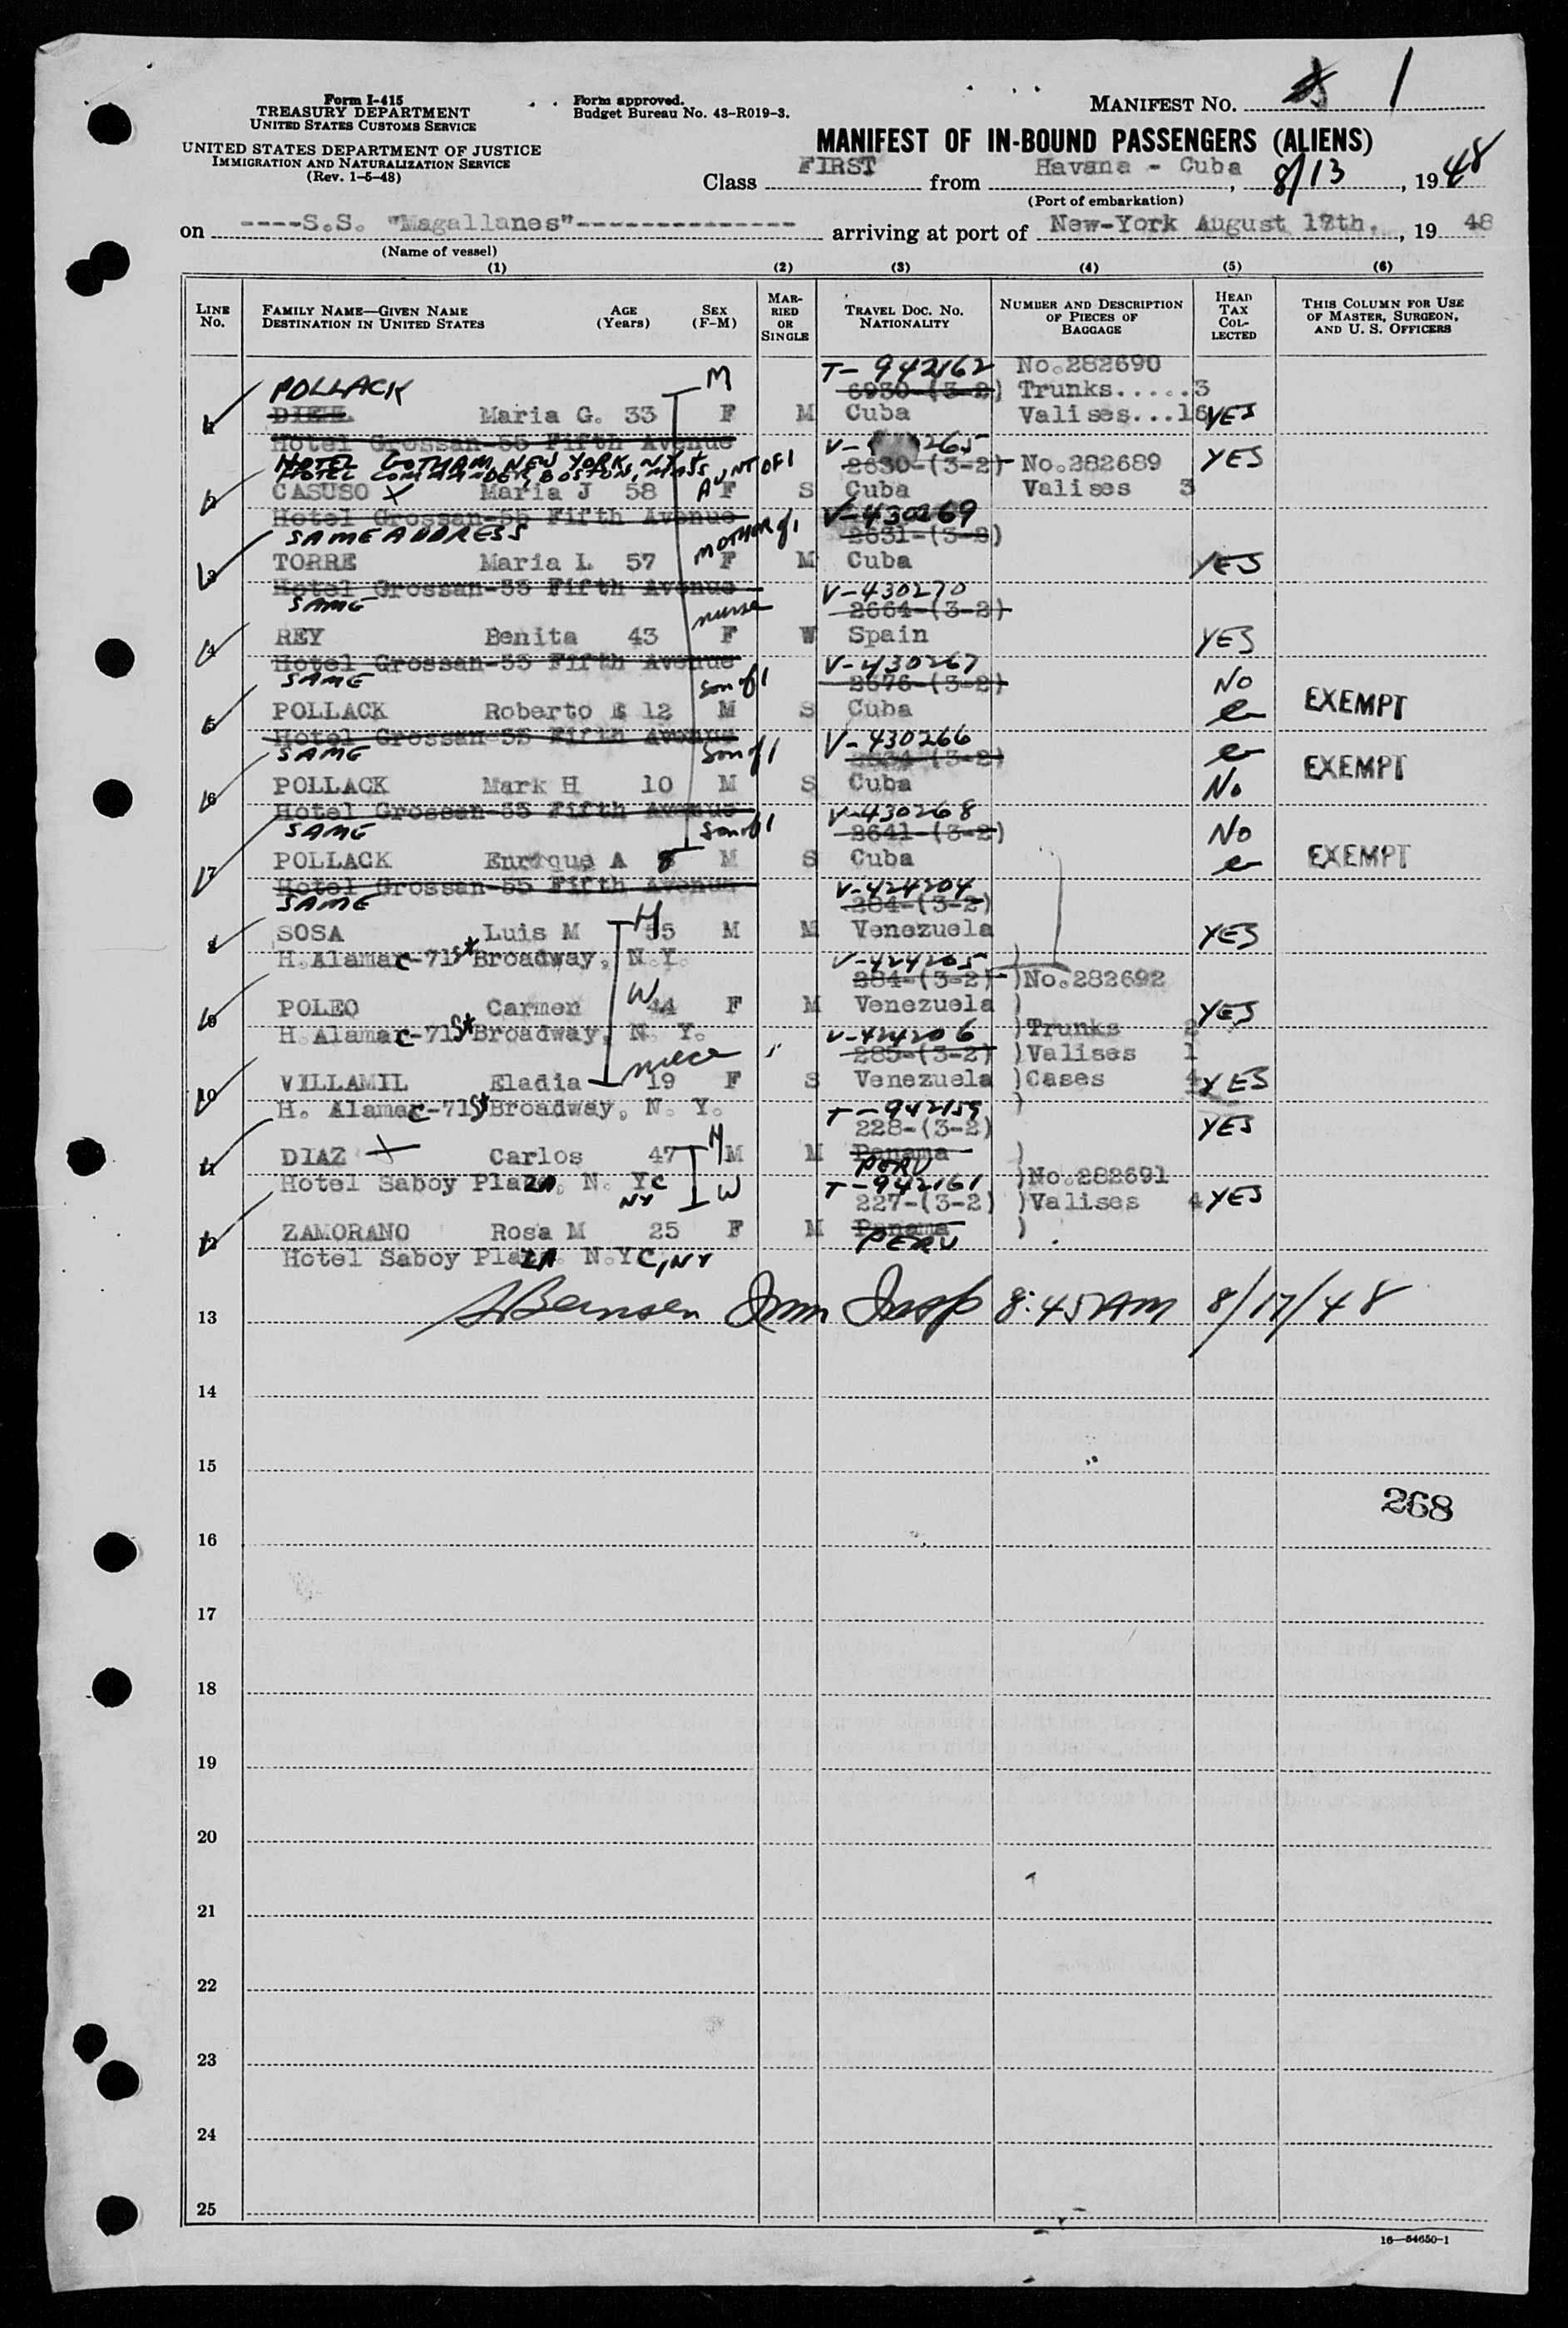 Form I-415
TREASURY DEPARTMENT
UNITED STATES CUSTOMS SERVICE
UNITED STATES DEPARTMENT OF JUSTICE
IMMIGRATION AND NATURALIZATION SERVICE
(Rev. 1-5-48)
Form approved.
Budget Bureau No. 43-R019-3.
MANIFEST NO. 1
MANIFEST OF IN-BOUND PASSENGERS (ALIENS)
Class FIRST from Havana - Cuba, 8/13, 1948
(Port of embarkation)
on ----S.S. "Magallanes"-------------- arriving at port of New-York August 17th., 19 48
(Name of vessel)
(1) (2) (3) (4) (5) (6)
LINE No. FAMILY NAME—GIVEN NAME DESTINATION IN UNITED STATES AGE (Years) SEX (F-M) MARRIED OR SINGLE TRAVEL DOC. NO. NATIONALITY NUMBER AND DESCRIPTION OF PIECES OF BAGGAGE HEAD TAX COLLECTED THIS COLUMN FOR USE OF MASTER, SURGEON, AND U. S. OFFICERS
M T-942162 No.282690
POLLACK 6930-(3-2) Trunks.....3
1 DIEHL Maria G. 33 F M Cuba Valises...16 YES
Hotel Grossan-55 Fifth Avenue V- 265
HOTEL GOTHAM, NEW YORK, NY + AUNT OF 1 2630-(3-2) No.282689 YES
HOTEL COMMANDER, BOSTON, MASS
2 CASUSO X Maria J 58 F S Cuba Valises 3
Hotel Grossan-55 Fifth Avenue V-430269
SAME ADDRESS MOTHER of 1 2631-(3-2)
3 TORRE Maria L 57 F M Cuba YES
Hotel Grossan-55 Fifth Avenue V-430270
SAME nurse 2664-(3-2)
4 REY Benita 43 F W Spain YES
Hotel Grossan-55 Fifth Avenue V-430267
SAME Son of 1 2676-(3-2) No
5 POLLACK Roberto E 12 M S Cuba EXEMPT
Hotel Grossan-55 Fifth Avenue V-430266
SAME Son of 1 (3-2) EXEMPT
6 POLLACK Mark H 10 M S Cuba No
Hotel Grossan-55 Fifth Avenue V-430268
SAME Son of 1 2641-(3-2) No
7 POLLACK Enrique A 8 M S Cuba EXEMPT
Hotel Grossan-55 Fifth Avenue V-424204
SAME 284-(3-2)
8 SOSA Luis M H 55 M M Venezuela YES
H. Alamac-71st Broadway, N.Y. V-424205
W 284-(3-2) )No.282692
9 POLEO Carmen 44 F M Venezuela ) YES
H Alamac-71st Broadway, N. Y. V-424206 )Trunks 2
niece 285-(3-2) )Valises 1
10 VILLAMIL Eladia 19 F S Venezuela )Cases 4 YES
H. Alamac-71st Broadway, N. Y. T-942159 )
228-(3-2) YES
11 DIAZ X Carlos 47 H M M Panama )
PERU
Hotel Saboy Plaza, N. YC NY T-942161 )No.282691
W 227-(3-2) )Valises 4 YES
12 ZAMORANO Rosa M 25 F M Panama )
PERU
Hotel Saboy Plaza N.YC, NY
13 Imm Insp 8:45 AM 8/17/48
14
15
268
16
17
18
19
20
21
22
23
24
25
16—54650-1